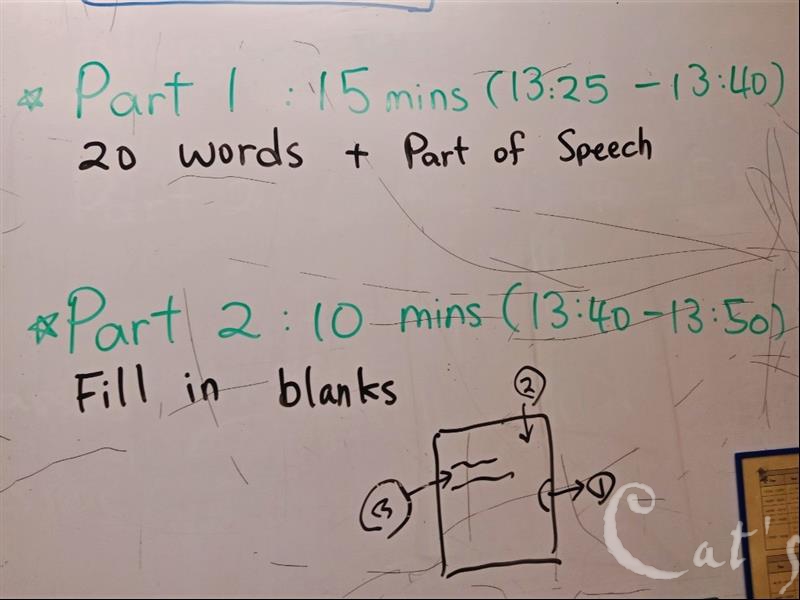 ☆ Part 1 : 15 mins (13:25 - 13:40)
20 words + Part of Speech
☆ Part 2 : 10 mins (13:40 - 13:50)
Fill in blanks
②
③
①
Cat's